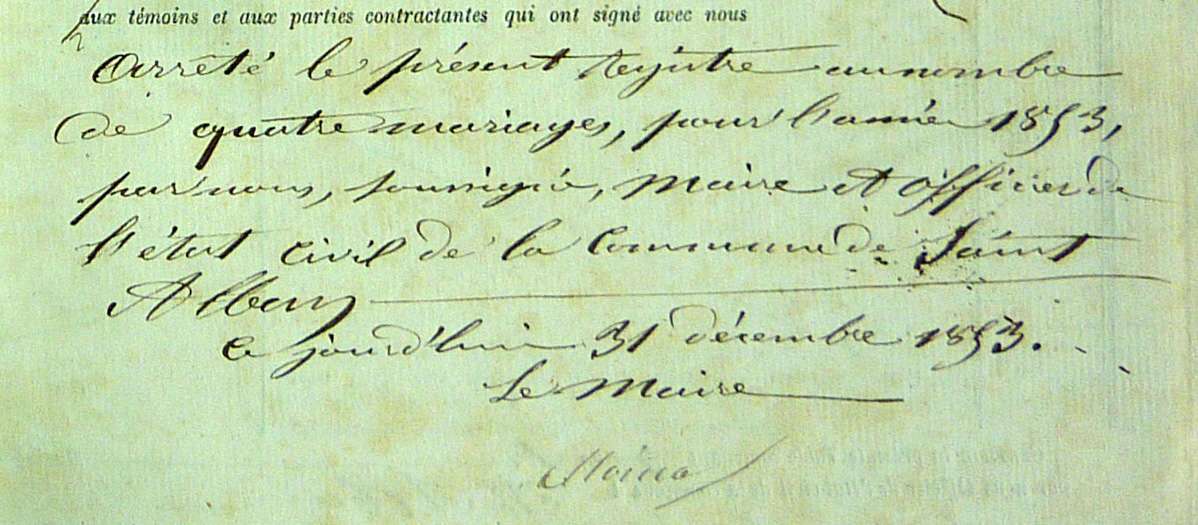 aux témoins et aux parties contractantes qui ont signé avec nous
Arrêté le présent registre au nombre
de quatre mariages, pour l'année 1853,
par nous, soussigné, Maire et officier de
l'état civil de la Commune de Saint
Alban
ce jourd'hui 31 décembre 1853.
Le Maire